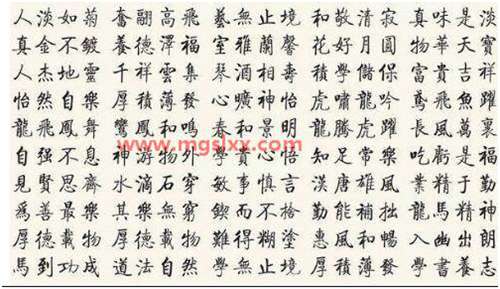 人淡如菊 奮翮高飛 藝無止境 和敬清寂 真味是淡
真金不鍍 養德澤福 室雅蘭馨 花好月圓 物華天寶
人杰地靈 千祥雲集 琴酒相壽 積學儲保 富貴吉祥
怡然自樂 厚積薄發 心曠神怡 虎嘯龍吟 鳶飛魚躍
龍飛鳳舞 鸞鳳和鳴 春和景明 龍騰虎躍 長風萬裏
自强不息 神游物外 心悟 知足常樂 吃虧是福
www.mgslxx.com
見賢思齊 水滴石穿 敏事慎言 漢唐雄風 業精于勤
爲善最樂 其樂無窮 鍥而不捨 勤能補拙 馬精神
厚德載物 厚德載物 難得糊塗 惠風和暢 入幽出朗
馬到功成 道法自然 學無止境 厚積薄發 學書養志